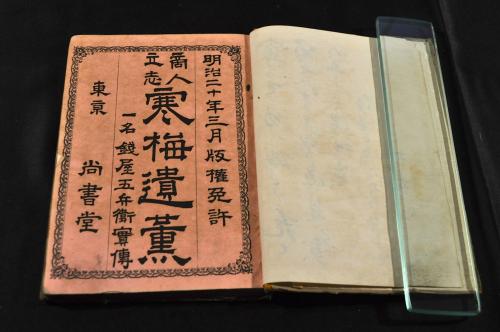 明治二十年三月版權免許
商人
立志
寒梅遺薫
一名錢屋五兵衞實傳
東京
尚書堂